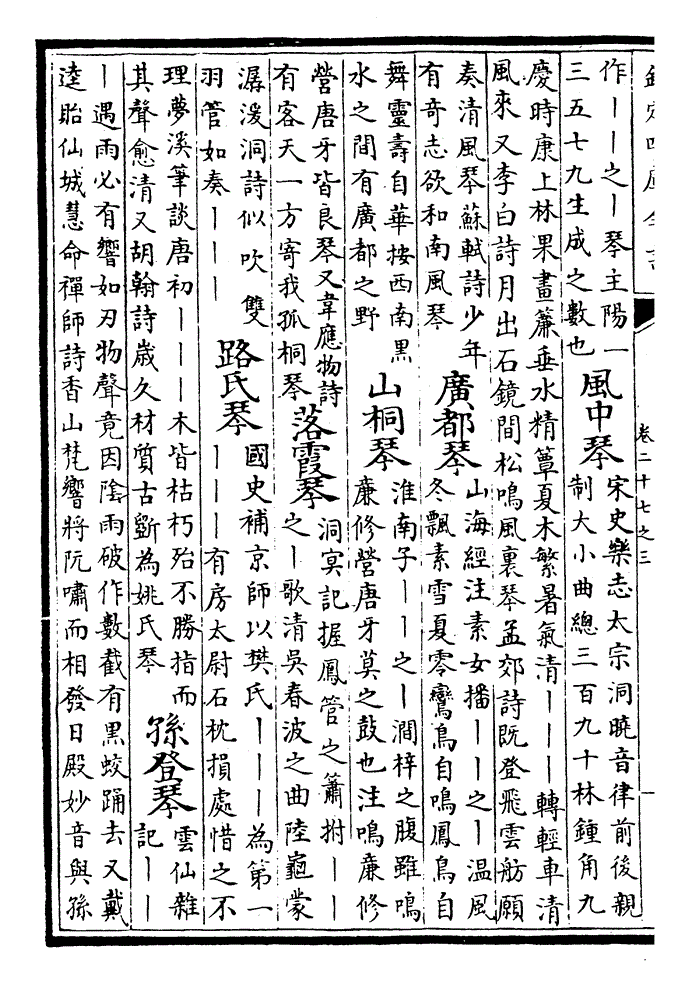 欽定四庫全書
卷二十七之三
作丨丨之丨琴主陽一
三五七九生成之數也
風中琴
宋史樂志太宗洞曉音律前後親
制大小曲總三百九十林鍾角九
慶時康上林果畫簾垂水精簟夏木繁暑氣清丨丨丨轉輕車清
風來又李白詩月出石鏡間松鳴風裏琴孟郊詩既登飛雲舫願
奏清風琴蘇軾詩少年
有奇志欲和南風琴
廣都琴
山海經注素女播丨丨之丨溫風
冬飄素雪夏零鸞鳥自鳴鳳鳥自
舞靈壽自華按西南黑
水之間有廣都之野
山桐琴
淮南子丨丨之丨澗梓之腹雖鳴
廉修營唐牙莫之鼓也注鳴廉修
營唐牙皆良琴又韋應物詩
有客天一方寄我孤桐琴
落霞琴
洞冥記握鳳管之簫拊丨丨
之丨歌清吳春波之曲陸龜蒙
潺湲洞詩似吹雙
羽管如奏丨丨丨
路氏琴
國史補京師以樊氏丨丨丨為第一
丨丨丨有房太尉石枕損處惜之不
理夢溪筆談唐初丨丨丨木皆枯朽殆不勝指而
其聲愈清又胡翰詩歲久材質古斵為姚氏琴
孫登琴
雲仙雜
記丨丨
丨遇雨必有響如刃物聲竟因陰雨破作數截有黑蛟踊去又戴
逵貽仙城慧命禪師詩香山梵響將阮嘯而相發日殿妙音與孫